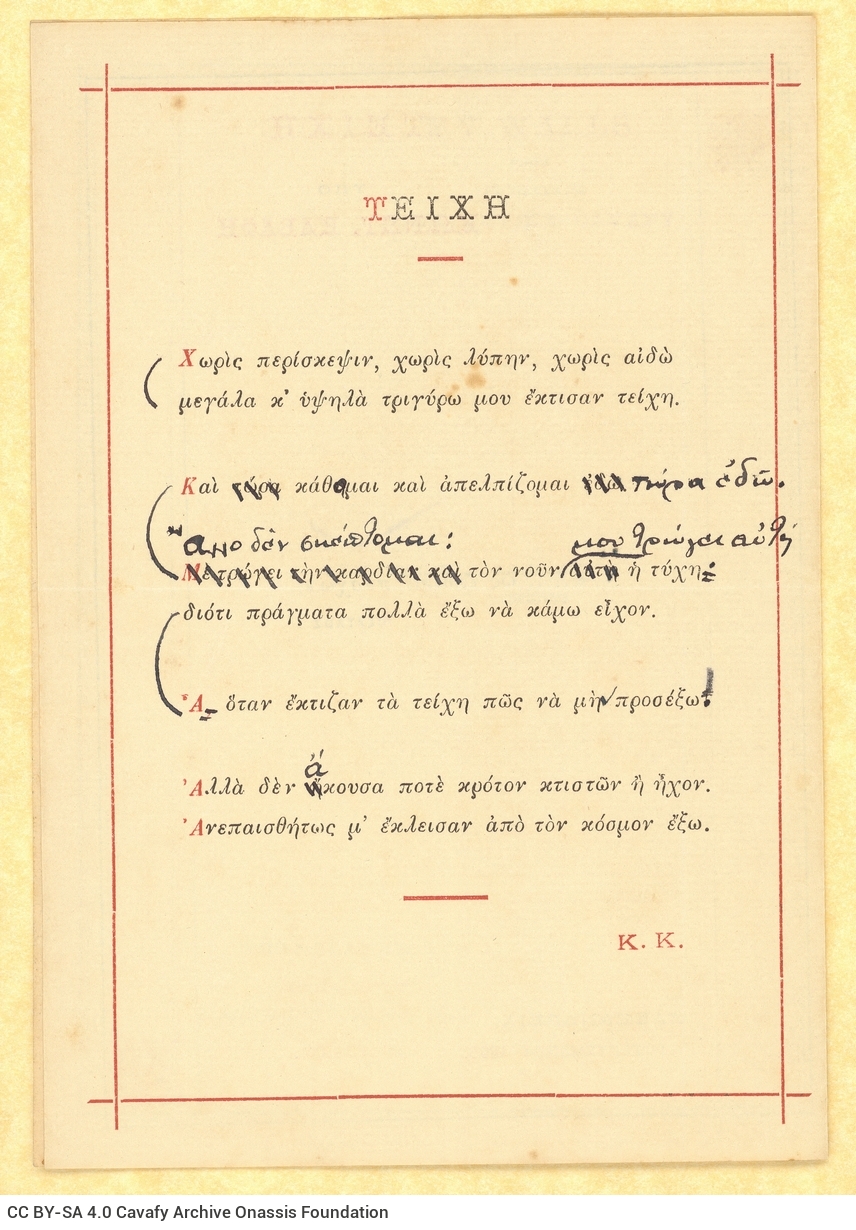 ΤΕΙΧΗ
Χωρὶς περίσκεψιν, χωρὶς λύπην, χωρὶς αἰδὼ
μεγάλα κ' ὑψηλὰ τριγύρω μου ἔκτισαν τείχη.
Καὶ τώρα κάθομαι καὶ ἀπελπίζομαι ἐδῶ τώρα ἐδῶ.
Ἄλλο δὲν σκέπτομαι: μου τρώγει αὐτὴ
Μὲ τρώγει τὴν καρδίαν καὶ τὸν νοῦν αὐτὴ ἡ τύχη·
διότι πράγματα πολλὰ ἔξω νὰ κάμω εἶχον.
Ἀ, ὅταν ἔκτιζαν τὰ τείχη πῶς νὰ μὴν προσέξω!
ἄ
Ἀλλὰ δὲν ἤκουσα ποτὲ κρότον κτιστῶν ἢ ἦχον.
Ἀνεπαισθήτως μ' ἔκλεισαν ἀπὸ τὸν κόσμον ἔξω.
Κ. Κ.
CC BY-SA 4.0 Cavafy Archive Onassis Foundation